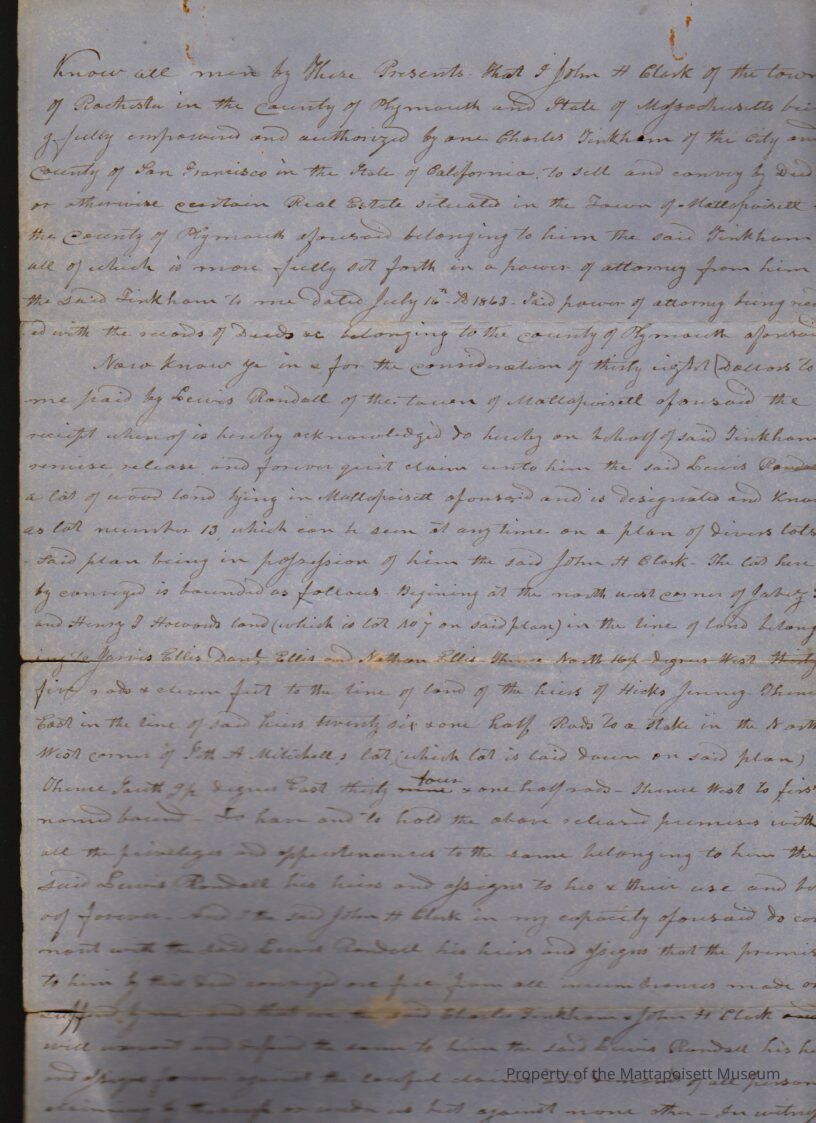 Know all men by these Presents. that I John H Clark of the town
of Rochester in the county of Plymouth and State of Massachusetts bei
g fully empowered and authorized by one Charles Tinkham of the City and
County of San Francisco in the State of California, to sell and convey by Deed
or otherwise certain Real Estate situated in the Town of Mattapoisett
the County of Plymouth aforesaid belonging to him the said Tinkham
all of which is more fully set forth in a power of attorney from him
the said Tinkham to me dated July 16th 1863. Said power of attorney being rec
ed with the records of Deeds &c belonging to the county of Plymouth aforesaid
Now know ye in & for the consideration of thirty eight Dollars to
me paid by Lewis Randall of the town of Mattapoisett aforesaid the
receipt whereof is hereby acknowledged do hereby on behalf of said Tinkham
remise, release, and forever quit claim unto him the said Lewis Randa
a lot of wood land lying in Mattapoisett aforesaid and is designated and know
as lot number 13, which can be seen at any time on a plan of divers lots
said plan being in possession of him the said John H Clark. The lot here
by conveyed is bounded as follows. Begining at the north west corner of Jabez
and Henry T Howards land (which is lot No 7 on said plan) in the line of land belong
ing to Jarvis Ellis Danl. Ellis and Nathan Ellis thence North degrees West thirty
five rods & eleven feet to the line of land of the heirs of Hicks Jenney. Thence
East in the line of said heirs twenty six & one half Rods to a stake in the North
West corner of Seth A Mitchells lot (which lot is laid down on said plan)
Thence South degrees East thirty nine four & one half rods - thence West to first
named bound - To have and to hold the above released premises with
all the privileges and appurtenances to the same belonging to him the
said Lewis Randall his heirs and assigns to his & their use and be
oof forever. And I the said John H Clark in my capacity aforesaid do cov
nant with the said Lewis Randall his heirs and assigns that the premis
to him by this deed conveyed are free from all incumbrances made or
suffered by me and that we the said Charles Tinkham & John H Clark
will warrant and defend the same to him the said Lewis Randall his he
and assigns forever against the lawful claims of all person
claiming by through or under us but against none other - In witness
Property of the Mattapoisett Museum